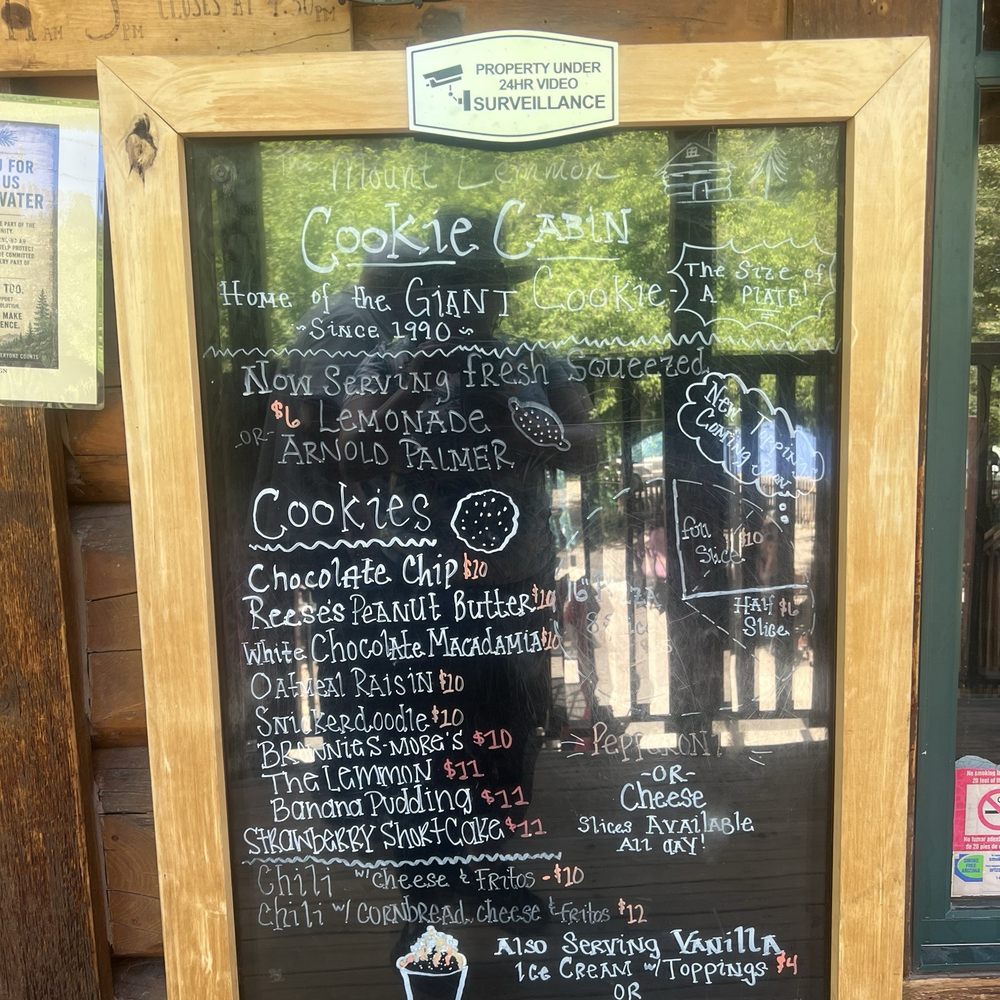 CLOSES AT 4:30PM
AM 5PM
PROPERTY UNDER
24HR VIDEO
SURVEILLANCE
U FOR
US
WATER
The Mount Lemmon
Cookie Cabin
Home of the GIANT Cookie-
The Size of
A PLATE!
~Since 1990~
Now Serving fresh Squeezed
$6 LEMONADE
-OR-
ARNOLD PALMER
New
Coming
Cookies
Chocolate Chip $10
Reese's Peanut Butter $10
White Chocolate Macadamia $10
Oatmeal Raisin $10
Snickerdoodle $10
Brownie S-more's $10
The Lemmon $11
Banana Pudding $11
Strawberry Shortcake $11
Full
Slice $10
Half $6
Slice
16" Pizza
Pepperoni
-OR-
Cheese
Slices Available
All day!
Chili w/ Cheese & Fritos - $10
Chili w/ cornbread, cheese & Fritos $12
Also Serving Vanilla
Ice Cream w/ Toppings $4
OR